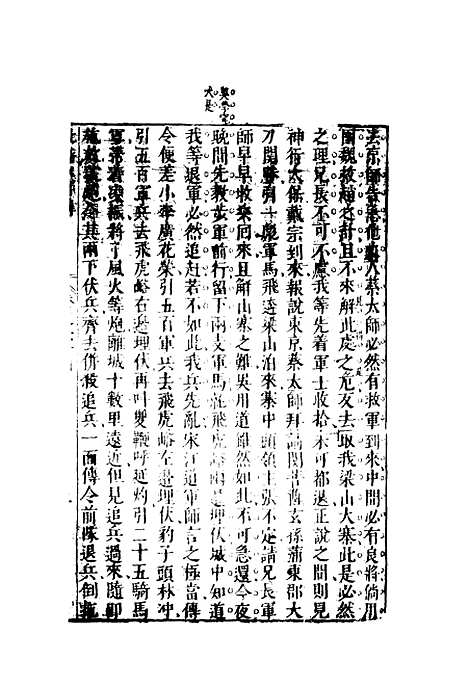 吳學究
大是
去京師告急他那八蔡太師必然有救軍到來中間必有良將倘用
圍魏救趙之計且不來解此處之危反去取我梁山大寨此是必然
之理兄長不可不慮我等先着軍士收拾未可都退正說之間則見
神行太保戴宗到來報說東京蔡太師拜請關菩薩玄孫蒲東郡大
刀關勝引一彪軍馬飛逩梁山泊來寨中頭領主張不定請兄長軍
師早早收柴回來且解山寨之難吳用道雖然如此不可急還今夜
晚間先教步軍前行留下兩支軍馬就飛虎峪兩邊埋伏城中知道
我等退軍必然追赶若不如此我兵先亂宋江道軍師言之極當傳
令便差小李廣花榮引五百軍兵去飛虎峪左邊埋伏豹子頭林冲
引五百軍兵去飛虎峪右邊埋伏再呌雙鞭呼延灼引二十五騎馬
軍帶着凌振將了風火等炮離城十數里遠近但見追兵過來隨即
施放號炮令其兩下伏兵齊去併殺追兵一面傳令前隊退兵倒